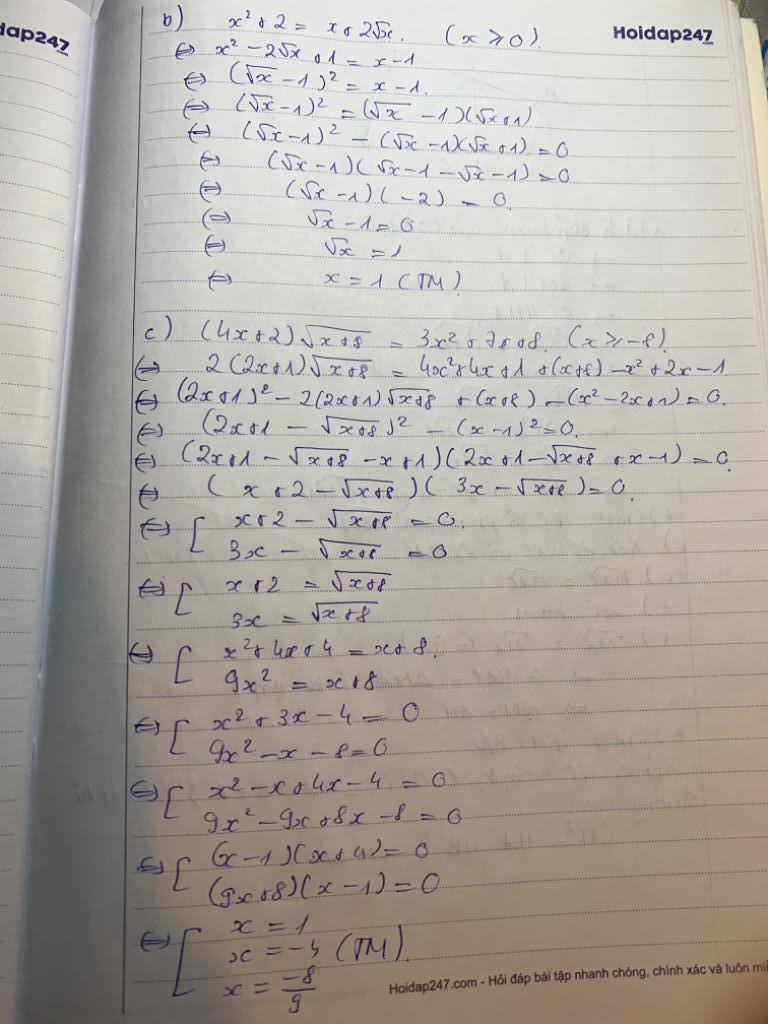 dap247
Hoidap247
b) x² + 2 = x + 2√x. (x ⩾ 0).
⇔ x² - 2√x + 1 = x - 1
⇔ (√x - 1)² = x - 1.
⇔ (√x - 1)² = (√x - 1)(√x + 1)
⇔ (√x - 1)² - (√x - 1)(√x + 1) = 0
⇔ (√x - 1)(√x - 1 - √x - 1) = 0
⇔ (√x - 1)(-2) = 0.
⇔ √x - 1 = 0
⇔ √x = 1
⇔ x = 1 (TM)
c) (4x + 2)√(x + 8) = 3x² + 7x + 8. (x ⩾ -8)
⇔ 2(2x + 1)√(x + 8) = 4x² + 4x + 1 + (x + 8) - x² + 2x - 1
⇔ (2x + 1)² - 2(2x + 1)√(x + 8) + (x + 8) - (x² - 2x + 1) = 0.
⇔ (2x + 1 - √(x + 8))² - (x - 1)² = 0.
⇔ (2x + 1 - √(x + 8) - x + 1)(2x + 1 - √(x + 8) + x - 1) = 0
⇔ (x + 2 - √(x + 8))(3x - √(x + 8)) = 0.
⇔ [ x + 2 - √(x + 8) = 0.
3x - √(x + 8) = 0
⇔ [ x + 2 = √(x + 8)
3x = √(x + 8)
⇔ [ x² + 4x + 4 = x + 8.
9x² = x + 8
⇔ [ x² + 3x - 4 = 0
9x² - x - 8 = 0
⇔ [ x² - x + 4x - 4 = 0
9x² - 9x + 8x - 8 = 0
⇔ [ (x - 1)(x + 4) = 0
(9x + 8)(x - 1) = 0
⇔ [ x = 1
x = -4 (TM).
x = -8/9
Hoidap247.com - Hỏi đáp bài tập nhanh chóng, chính xác và luôn miễ